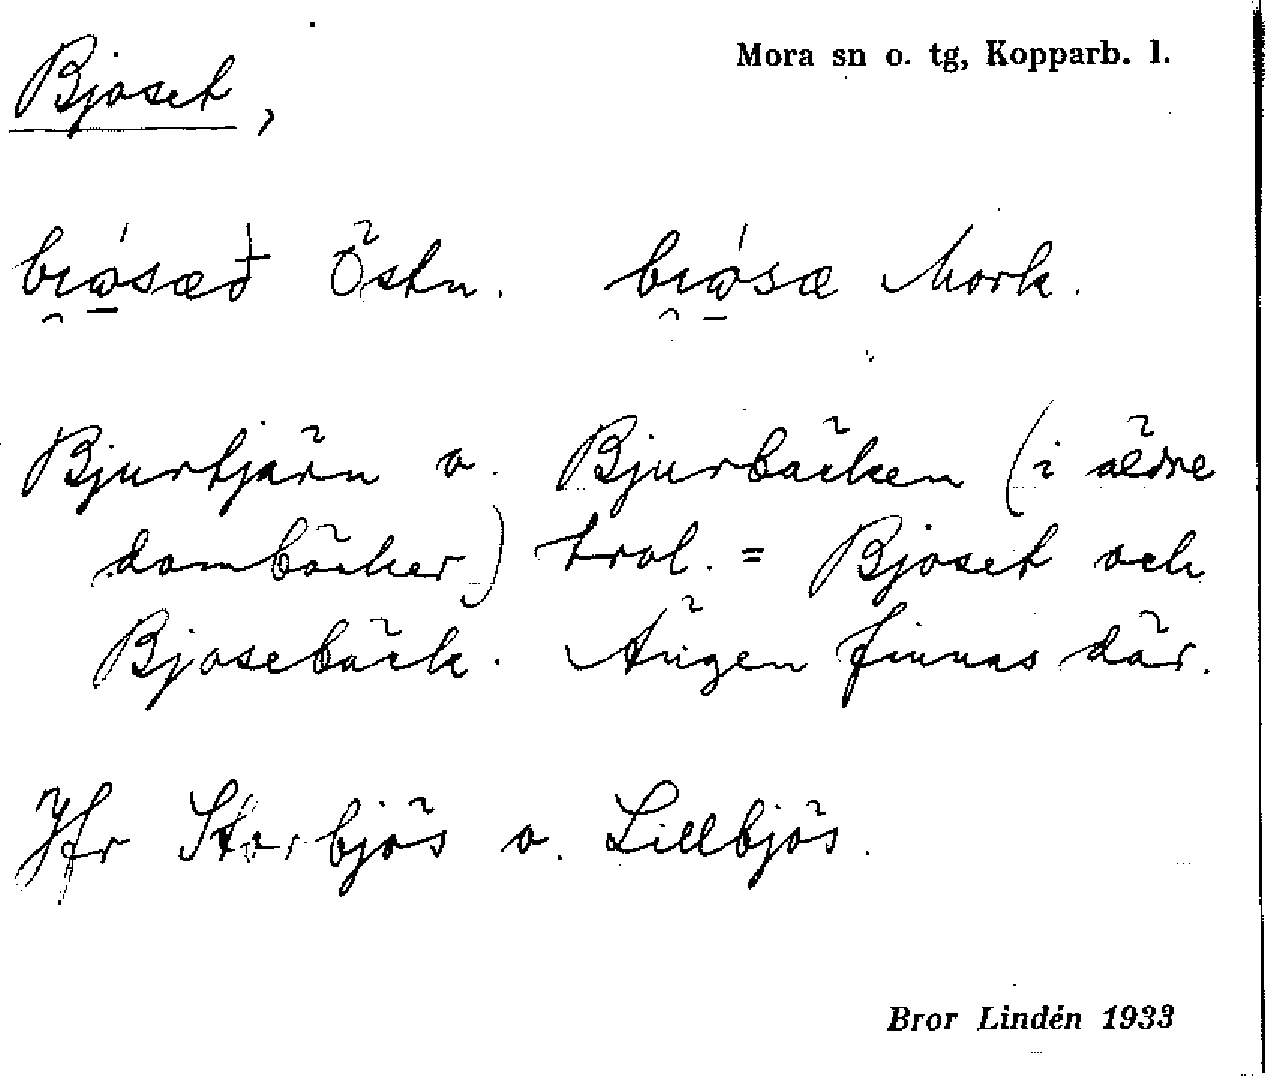 Mora sn o. tg, Kopparb. l.
Bjoset,
bıώ̱sæð Östn. bıώ̱sæ Mork.
Bjurtjärn o. Bjurbäcken (i äldre
domböcker) trol. = Bjoset och
Bjosebäck. Ängen finnas där.
Jfr Storbjös o. Lillbjös.
Bror Lindén 1933